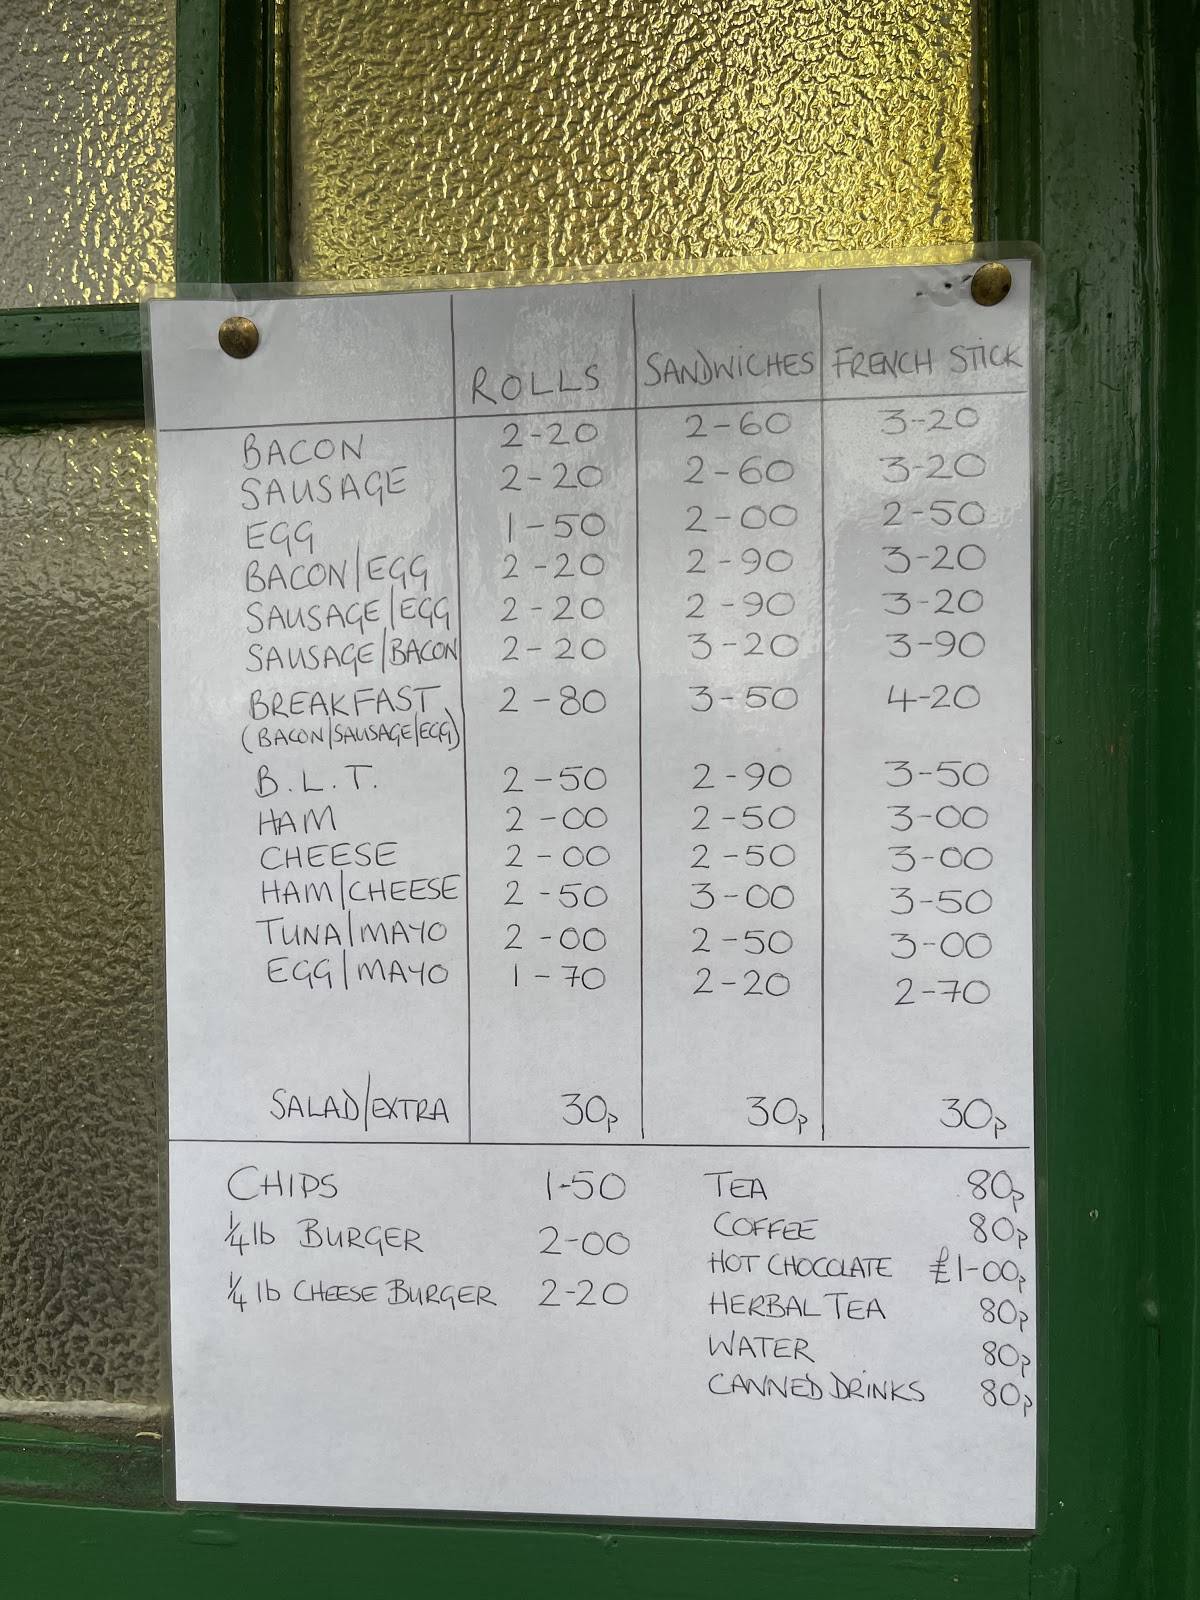 ROLLS SANDWICHES FRENCH STICK
BACON 2-20 2-60 3-20
SAUSAGE 2-20 2-60 3-20
EGG 1-50 2-00 2-50
BACON/EGG 2-20 2-90 3-20
SAUSAGE/EGG 2-20 2-90 3-20
SAUSAGE/BACON 2-20 3-20 3-90
BREAKFAST 2-80 3-50 4-20
(BACON/SAUSAGE/EGG)
B.L.T. 2-50 2-90 3-50
HAM 2-00 2-50 3-00
CHEESE 2-00 2-50 3-00
HAM/CHEESE 2-50 3-00 3-50
TUNA/MAYO 2-00 2-50 3-00
EGG/MAYO 1-70 2-20 2-70
SALAD/EXTRA 30p 30p 30p
CHIPS 1-50
1/4 lb BURGER 2-00
1/4 lb CHEESE BURGER 2-20
TEA 80p
COFFEE 80p
HOT CHOCOLATE £1-00p
HERBAL TEA 80p
WATER 80p
CANNED DRINKS 80p